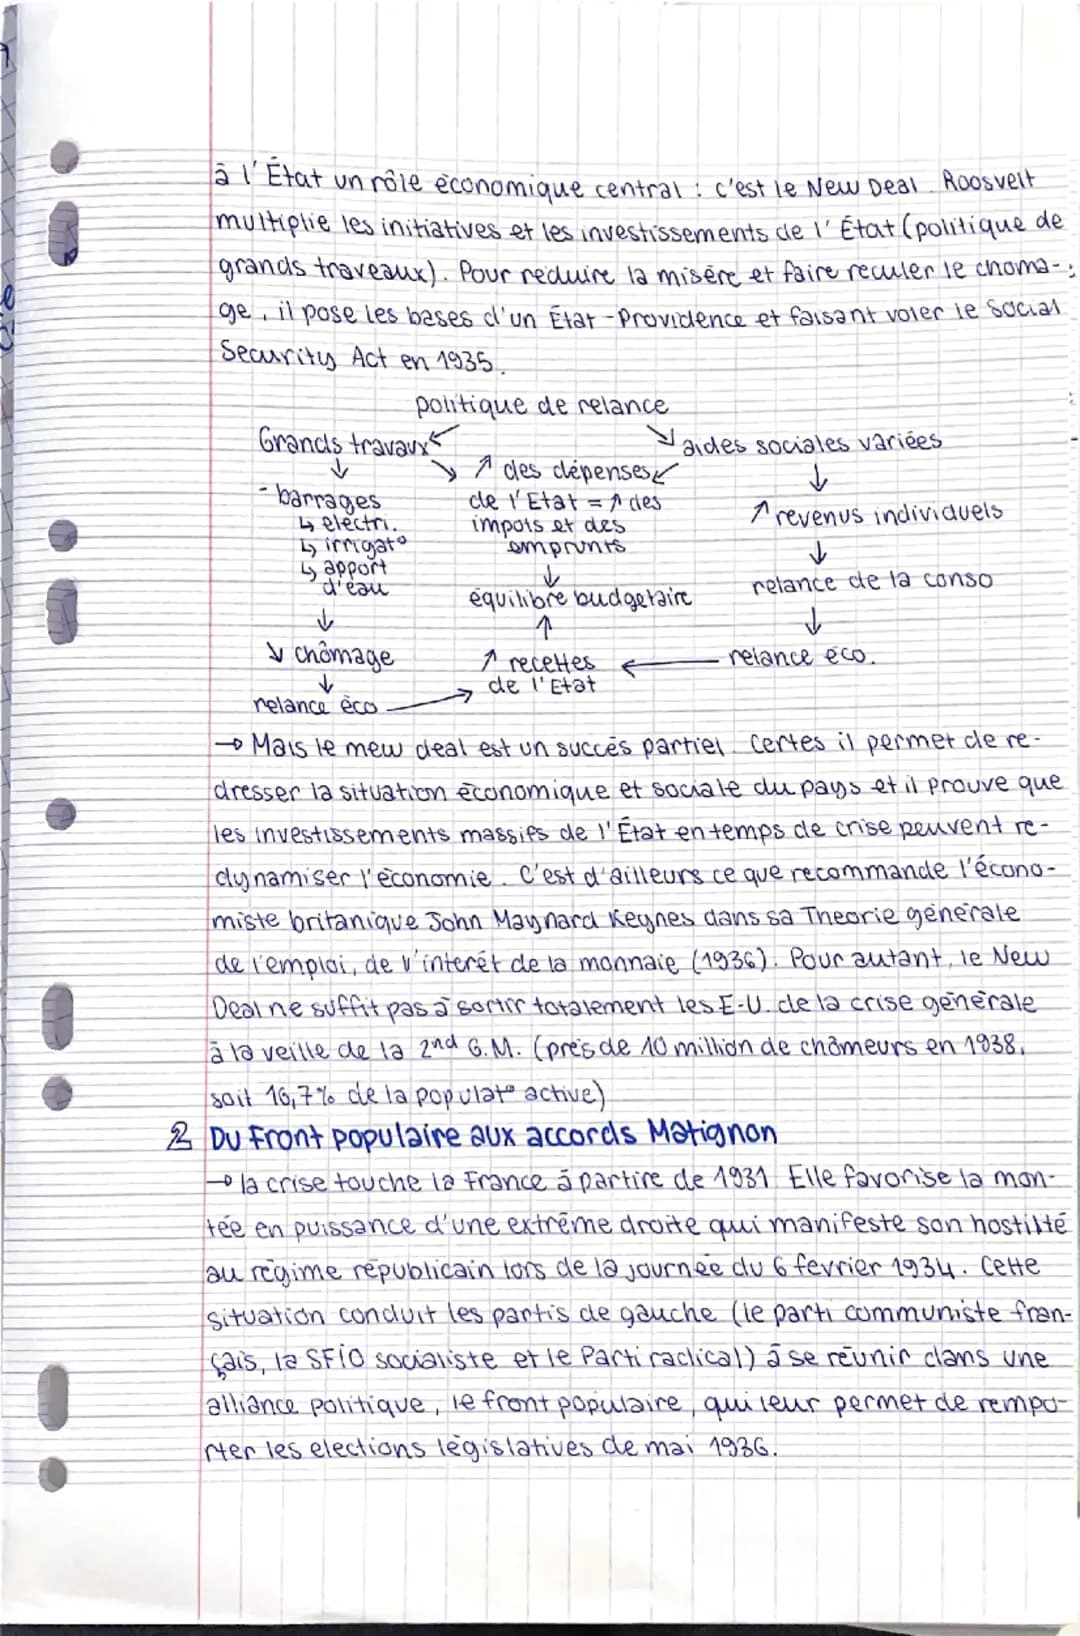 à l'État un rôle économique central : c'est le New Deal. Roosvelt
multiplie les initiatives et les investissements de l'État (politique de
grands traveaux). Pour reduire la misère et faire reculer le choma-
ge, il pose les bases d'un État-Providence et faisant voler le Social
Security Act en 1935.
politique de relance
Grands travaux ↙ ↘ aides sociales variées
↓ ↘ ↗ des dépenses ↙ ↓
- barrages de l'Etat = ↗ des ↗ revenus individuels
↳ electri. impots et des
↳ irrigat° emprunts ↓
↳ apport ↓ relance de la conso
d'eau équilibre budgetaire
↓ ↑ ↓
↘ chômage ↗ recettes ← relance éco.
↓ de l'Etat
relance éco →
→ Mais le mew deal est un succés partiel. Certes il permet de re-
dresser la situation économique et sociale du pays et il prouve que
les investissements massifs de l'État en temps de crise peuvent re-
dynamiser l'économie. C'est d'ailleurs ce que recommande l'écono-
miste britanique John Maynard Keynes dans sa Theorie générale
de l'emploi, de l'interêt de la monnaie (1936). Pour autant, le New
Deal ne suffit pas à sortir totalement les E-U. de la crise générale
à la veille de la 2nd G.M. (près de 10 million de chômeurs en 1938,
soit 16,7% de la populat° active)
2 Du Front populaire aux accords Matignon
→ la crise touche la France à partire de 1931. Elle favorise la mon-
tée en puissance d'une extrême droite qui manifeste son hostilité
au régime républicain lors de la journée du 6 fevrier 1934. Cette
situation conduit les partis de gauche (le parti communiste fran-
çais, la SFIO socialiste et le Parti radical) à se réunir dans une
alliance politique, le front populaire, qui leur permet de rempo-
rter les elections législatives de mai 1936.